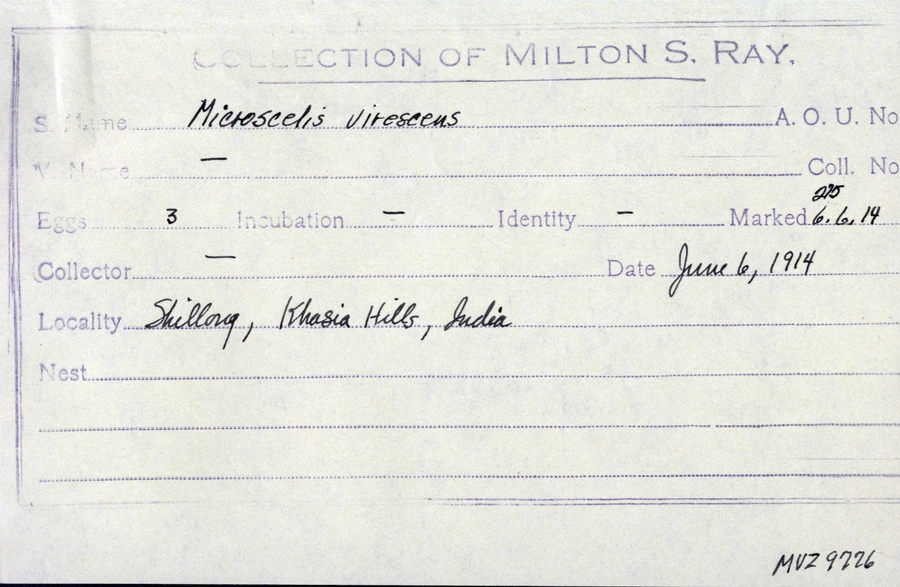 COLLECTION OF MILTON S. RAY.
S. Name Microscelis virescens A. O. U. No
V. Name — Coll. No
275
Eggs 3 Incubation — Identity — Marked 6.6.14
Collector — Date June 6, 1914
Locality Shillong, Khasia Hills, India
Nest
MVZ 9776